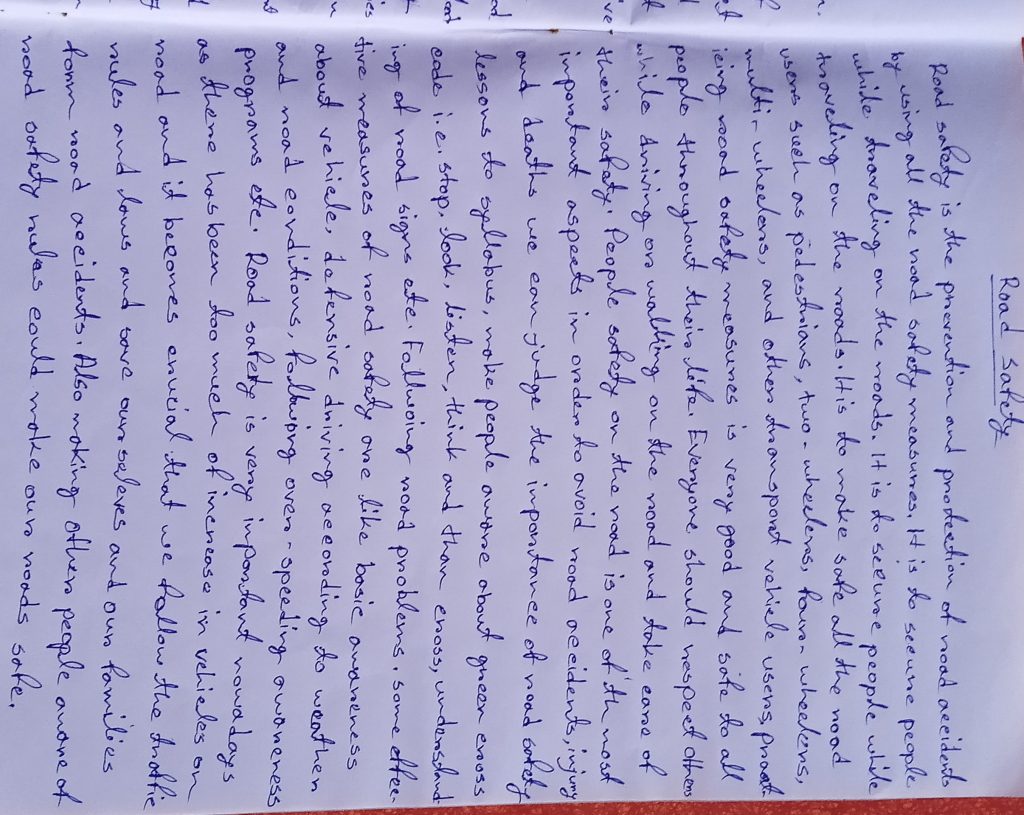 Road safety
Road safety is the prevention and protection of road accidents
by using all the road safety measures. It is to secure people
while traveling on the roads. It is to secure people while
traveling on the roads. It is to make safe all the road
users such as pedestrians, two-wheelers, four-wheelers,
multi-wheelers, and other transport vehicle users, pract-
icing road safety measures is very good and safe to all
people throughout their life. Everyone should respect others
while driving or walking on the road and take care of
their safety. People safety on the road is one of th most
important aspects in order to avoid road accidents, injury
and deaths we can judge the importance of road safety
lessons to syllabus, make people aware about green cross
code i.e. stop, look, listen, think and than cross, understand-
ing of road signs etc. Following road problems. some effec-
tive measures of road safety are like basic awareness
about vehicle, defensive driving according to weather
and road conditions, following over-speeding awareness
programs etc. Road safety is very important nowadays
as there has been too much of increase in vehicles on
road and it becomes crucial that we follow the traffic
rules and laws and save ourselves and our families
form road accidents. Also making others people aware of
road safety rules could make our roads safe.